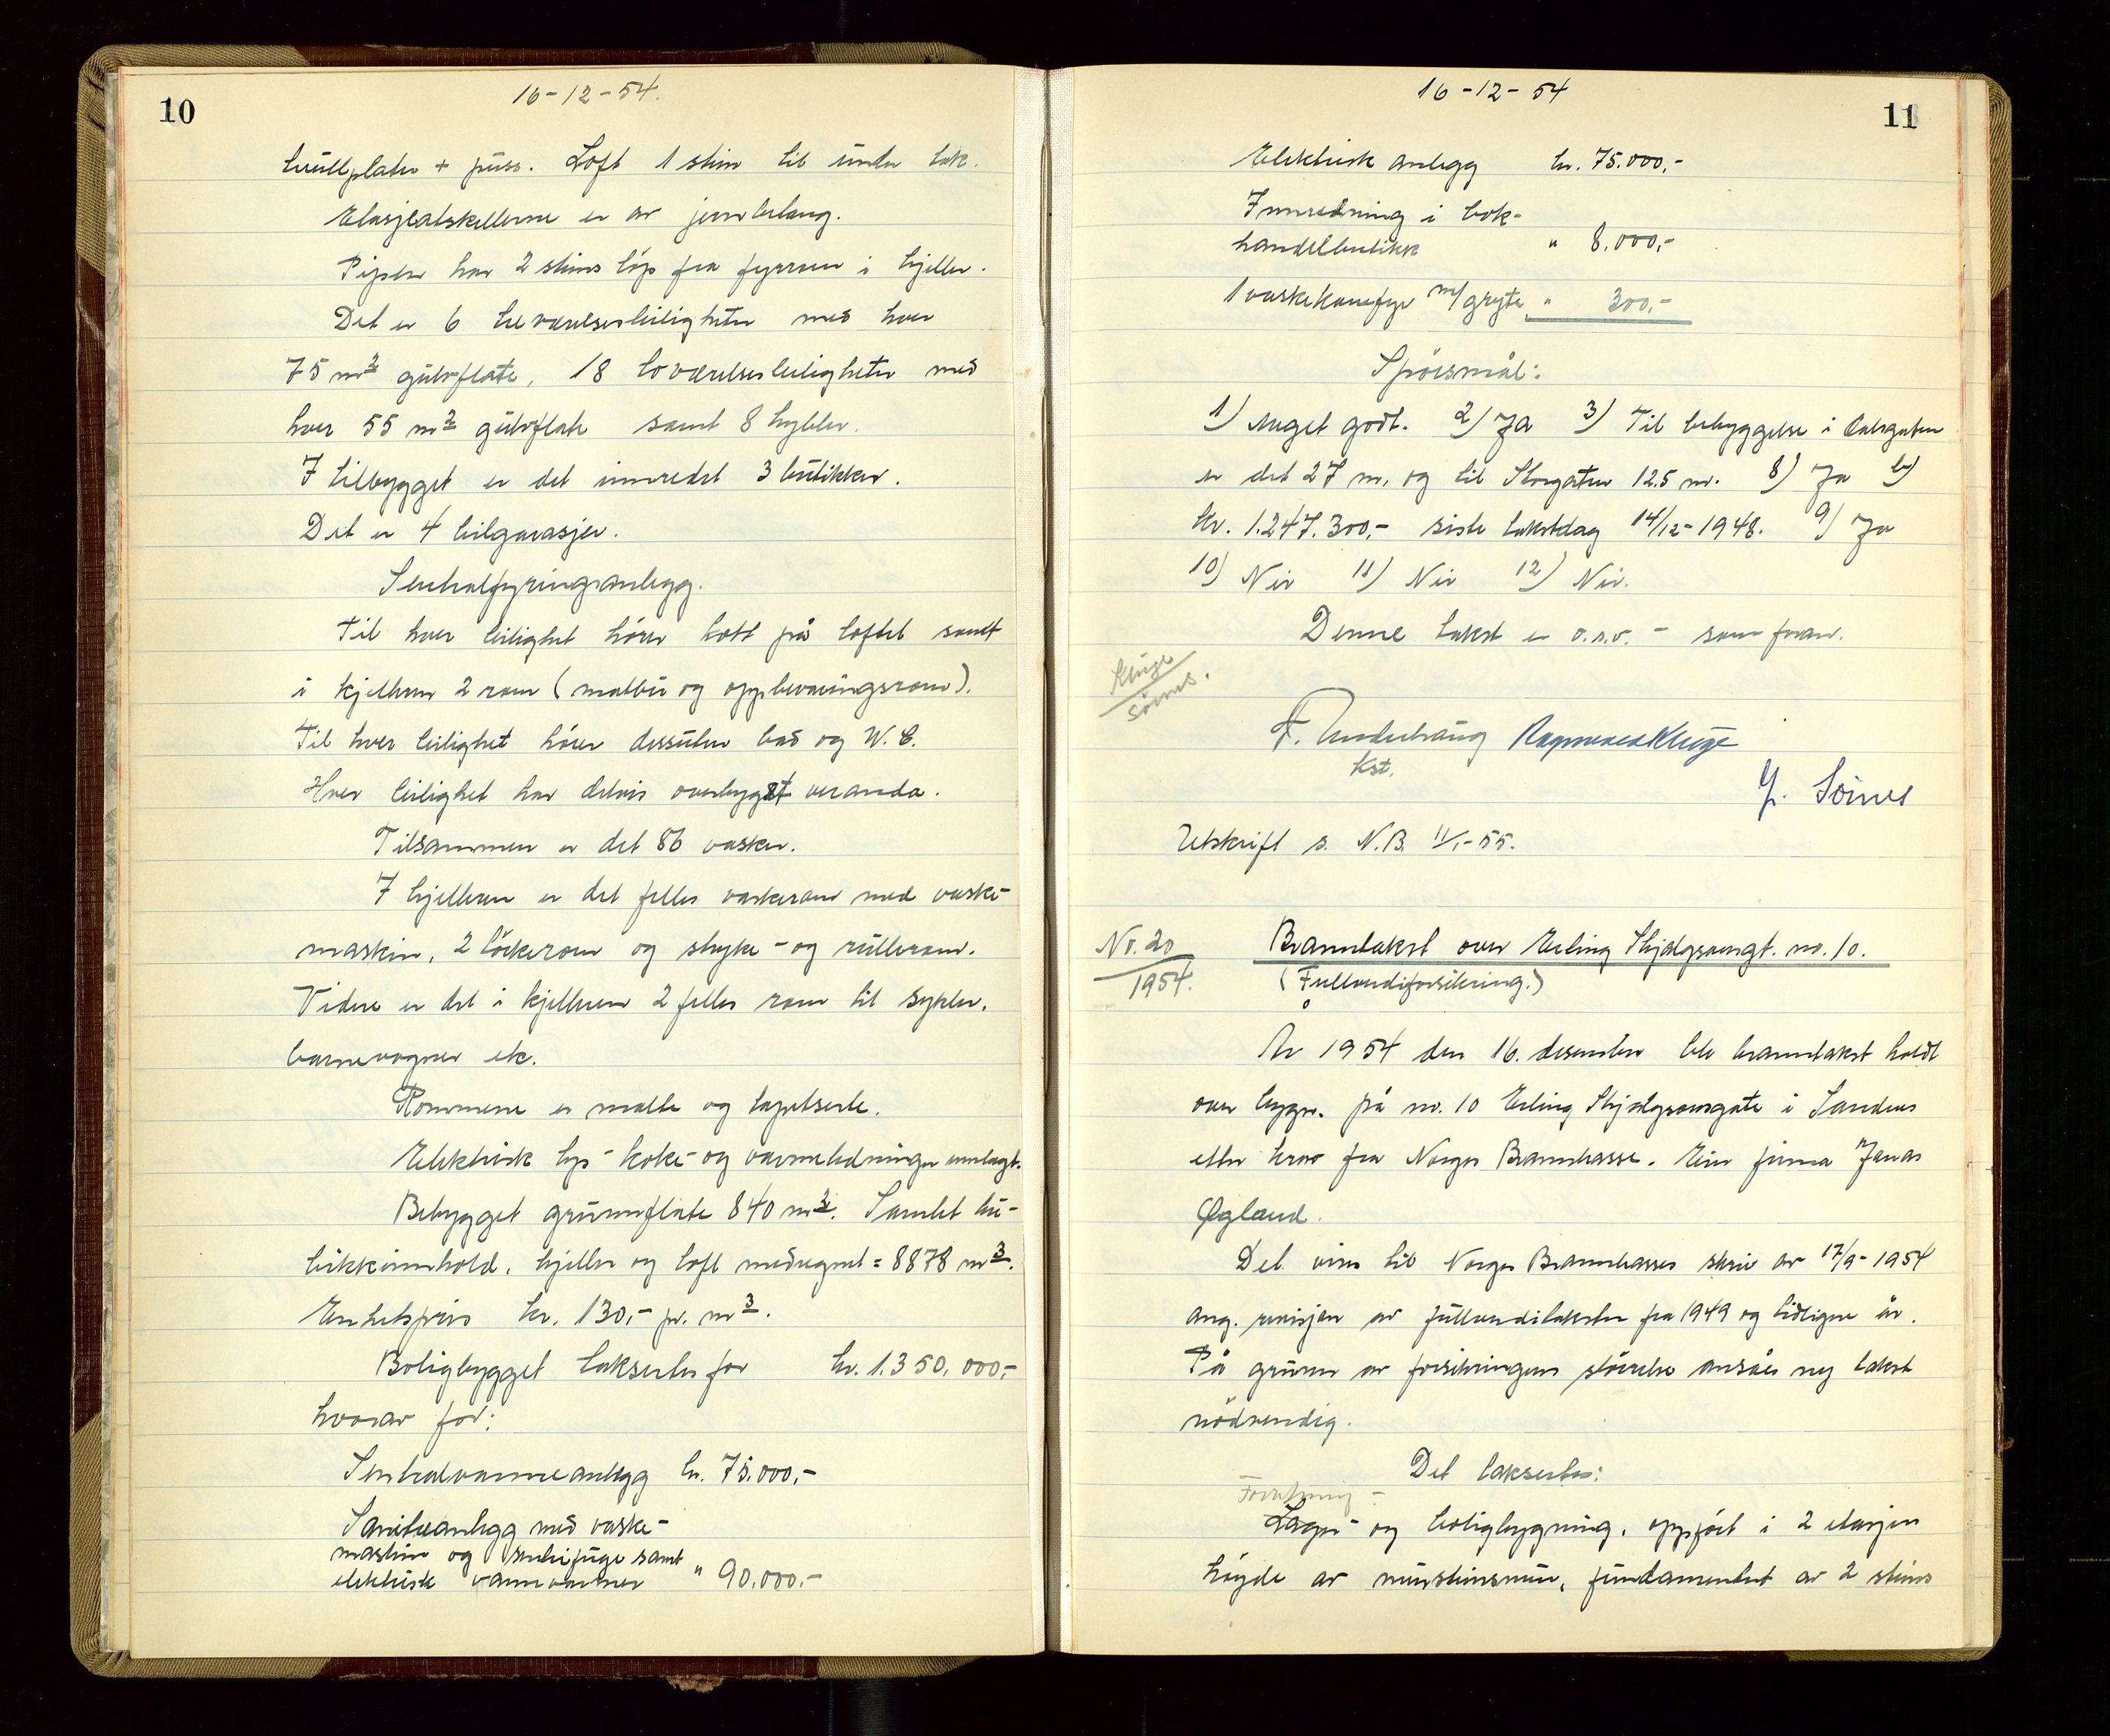 10
16-12-54.
treullplater + puss. Loft 1 stein til under tak.
Etasjeatskillerne er av jernbetong.
Pipen har 2 steins løp fra fyrrom i kjeller.
Det er 6 treværelsesleiligheter med hver
75 m² gulvflate, 18 toværelsesleiligheter med
hver 55 m² gulvflate samt 8 hybler.
I tilbygget er det innredet 3 butikker.
Det er 4 bilgarasjer.
Sentralfyringsanlegg.
Til hver leilighet hører kott på loftet samt
i kjelleren 2 rom (matbu og oppbevaringsrom).
Til hver leilighet hører dessuten bad og W.C.
Hver leilighet har delvis overbygt veranda.
Tilsammen er det 86 vasker.
I kjelleren er det felles vaskerom med vaske-
maskin, 2 tørkerom og stryke- og rullerom.
Videre er det i kjelleren 2 felles rom til sykler,
barnevogner etc.
Rommene er malte og tapetserte.
Elektrisk lys- koke- og varmeledninger innlagt.
Bebygget grunnflate 840 m². Samlet ku-
bikkinnhold, kjeller og loft medregnet = 8878 m³.
Enhetspris kr. 130,- pr. m³.
Boligbygget takseres for kr. 1.350.000,-
hvorav for:
Sentralvarmeanlegg kr. 75.000,-
Sanitæranlegg med vaske-
maskin og sentrifuge samt
elektrisk vannvarmer " 90.000.-
11
16-12-54
Elektrisk anlegg kr. 75.000,-
Innredning i bok-
handelbutikk " 8.000,-
1 vaskekomfyr m/gryte " 300,-
Spørsmål:
1) Meget godt. 2) Ja 3) Til bebyggelse i
er det 27 m. og til Storgaten 12.5 m. 8) Ja b)
kr. 1.247.300,- siste takstdag 14/12-1948. 9) Ja
10) Nei 11) Nei 12) Nei.
Denne takst er o.s.v. - som foran.
Kluge
Sørnes.
F. Underhaug Ragnvald Kluge
Kst.
Sørnes
Utskrift s. N.B. 11/1-55.
No. 20
1954.
Branntakst over Erling Skjalgsonsgt. no. 10.
(Fullverdiforsikring.)
År 1954 den 16. desember ble branntakst holdt
over bygn. på no. 10 Erling Skjalgsonsgate i Sandnes
etter krav fra Norges Brannkasse. Eier firma Jonas
Øgland.
Det vises til Norges Brannkasses skriv av 17/9-1954
ang. revisjon av fullverditakster fra 1949 og tidligere år.
På grunn av forsikringens størrelse ansåes ny takst
nødvendig.
Det takseres:
Forretning-
Lager- og boligbygning, oppført i 2 etasjers
høyde av murstensmur, fundamentet av 2 steins